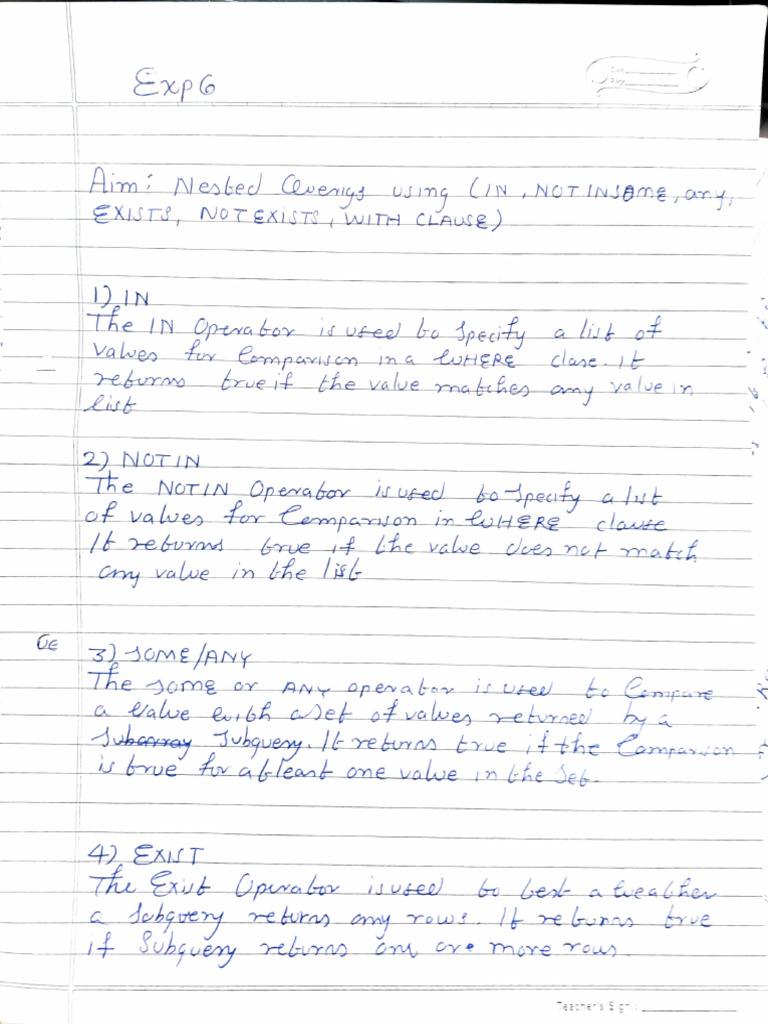 Exp 6
Aim: Nested Queries using (IN, NOT IN SOME, any,
EXISTS, NOT EXISTS, WITH CLAUSE)
1) IN
The IN Operator is used to Specify a list of
values for Comparison in a WHERE clase. it
returns true if the value matches any value in
list
2) NOT IN
The NOT IN Operator is used to specify a list
of values for Comparison in WHERE clause
It returns true if the value does not match
any value in the list
3) SOME/ANY
The SOME or ANY operator is used to Compare
a value with a set of values returned by a
Subarray Subquery. It returns true if the Comparison
is true for atleast one value in the set.
4) EXIST
The Exist Operator is used to test a
a subquery returns any rows. It returns true
if Subquery returns one ore more rows.
Teacher's Sign.: